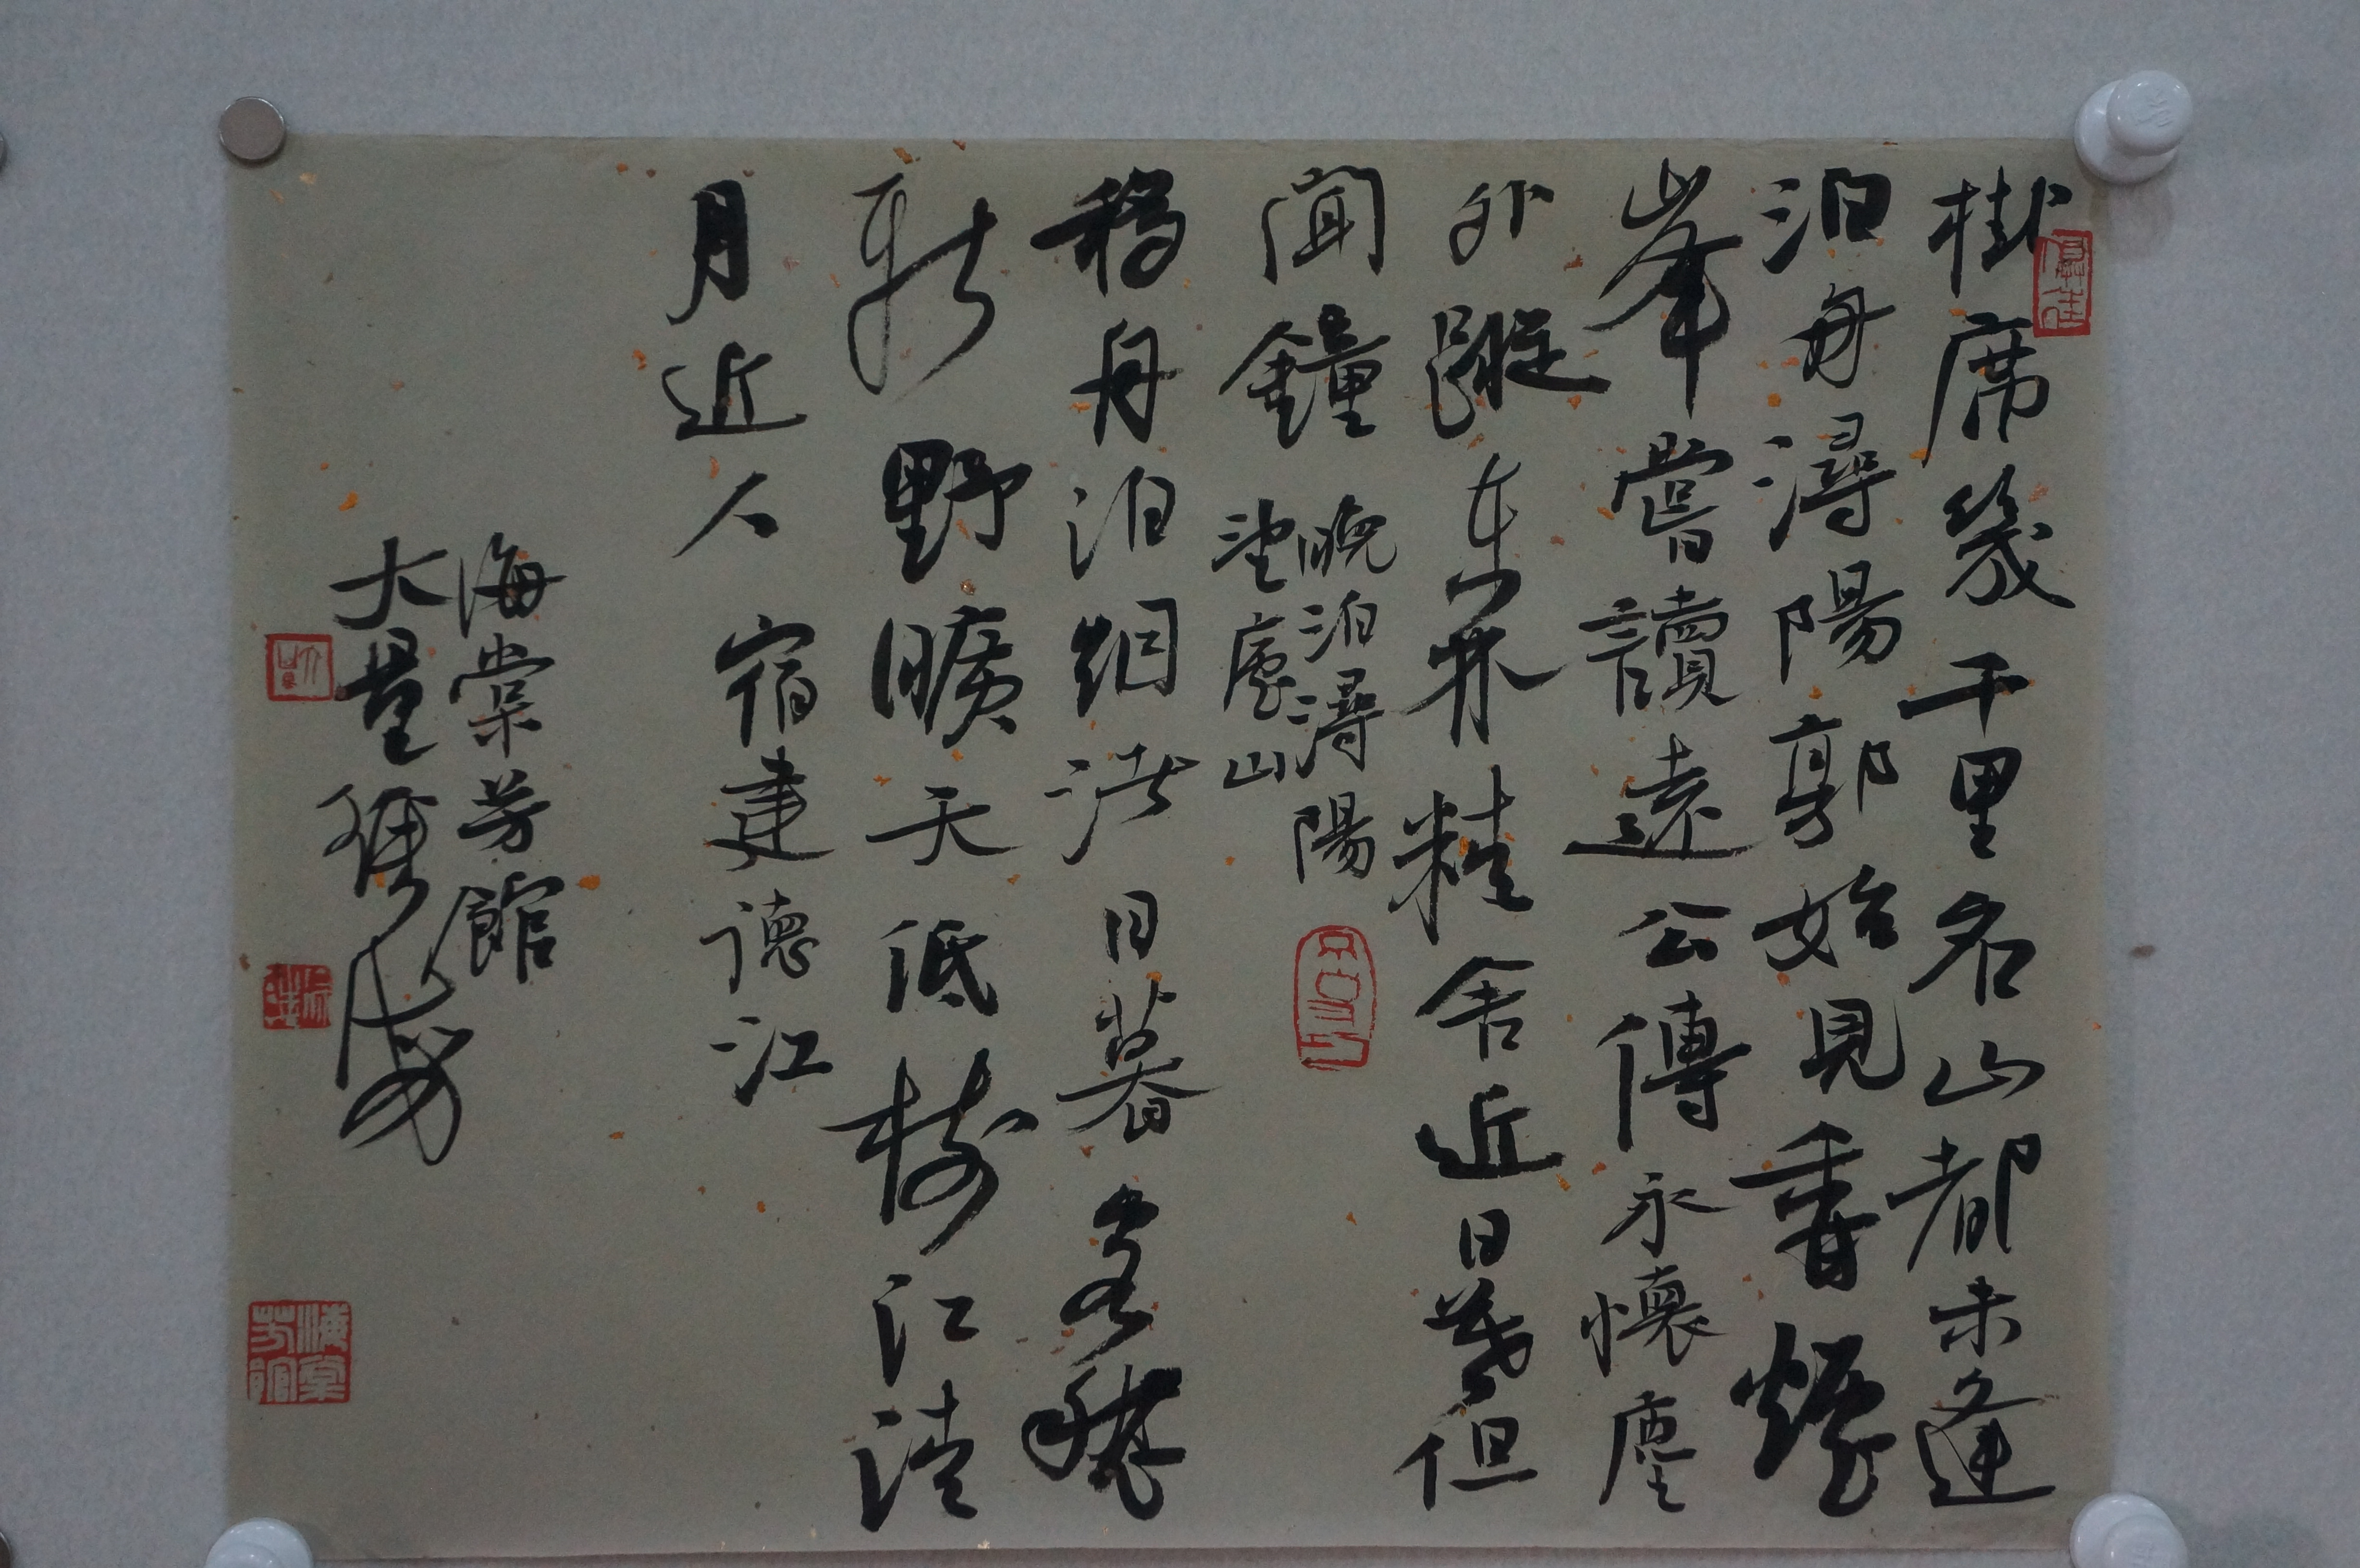 掛席幾千里名山都未逢
泊舟潯陽郭始見香爐
峯嘗讀遠公傳永懷塵
外蹤東林精舍近日暮但
聞鐘
晚泊潯陽
望廬山
移舟泊烟渚日暮客愁
新野曠天低樹江清
月近人 宿建德江
海棠芳館
大量
海棠芳館